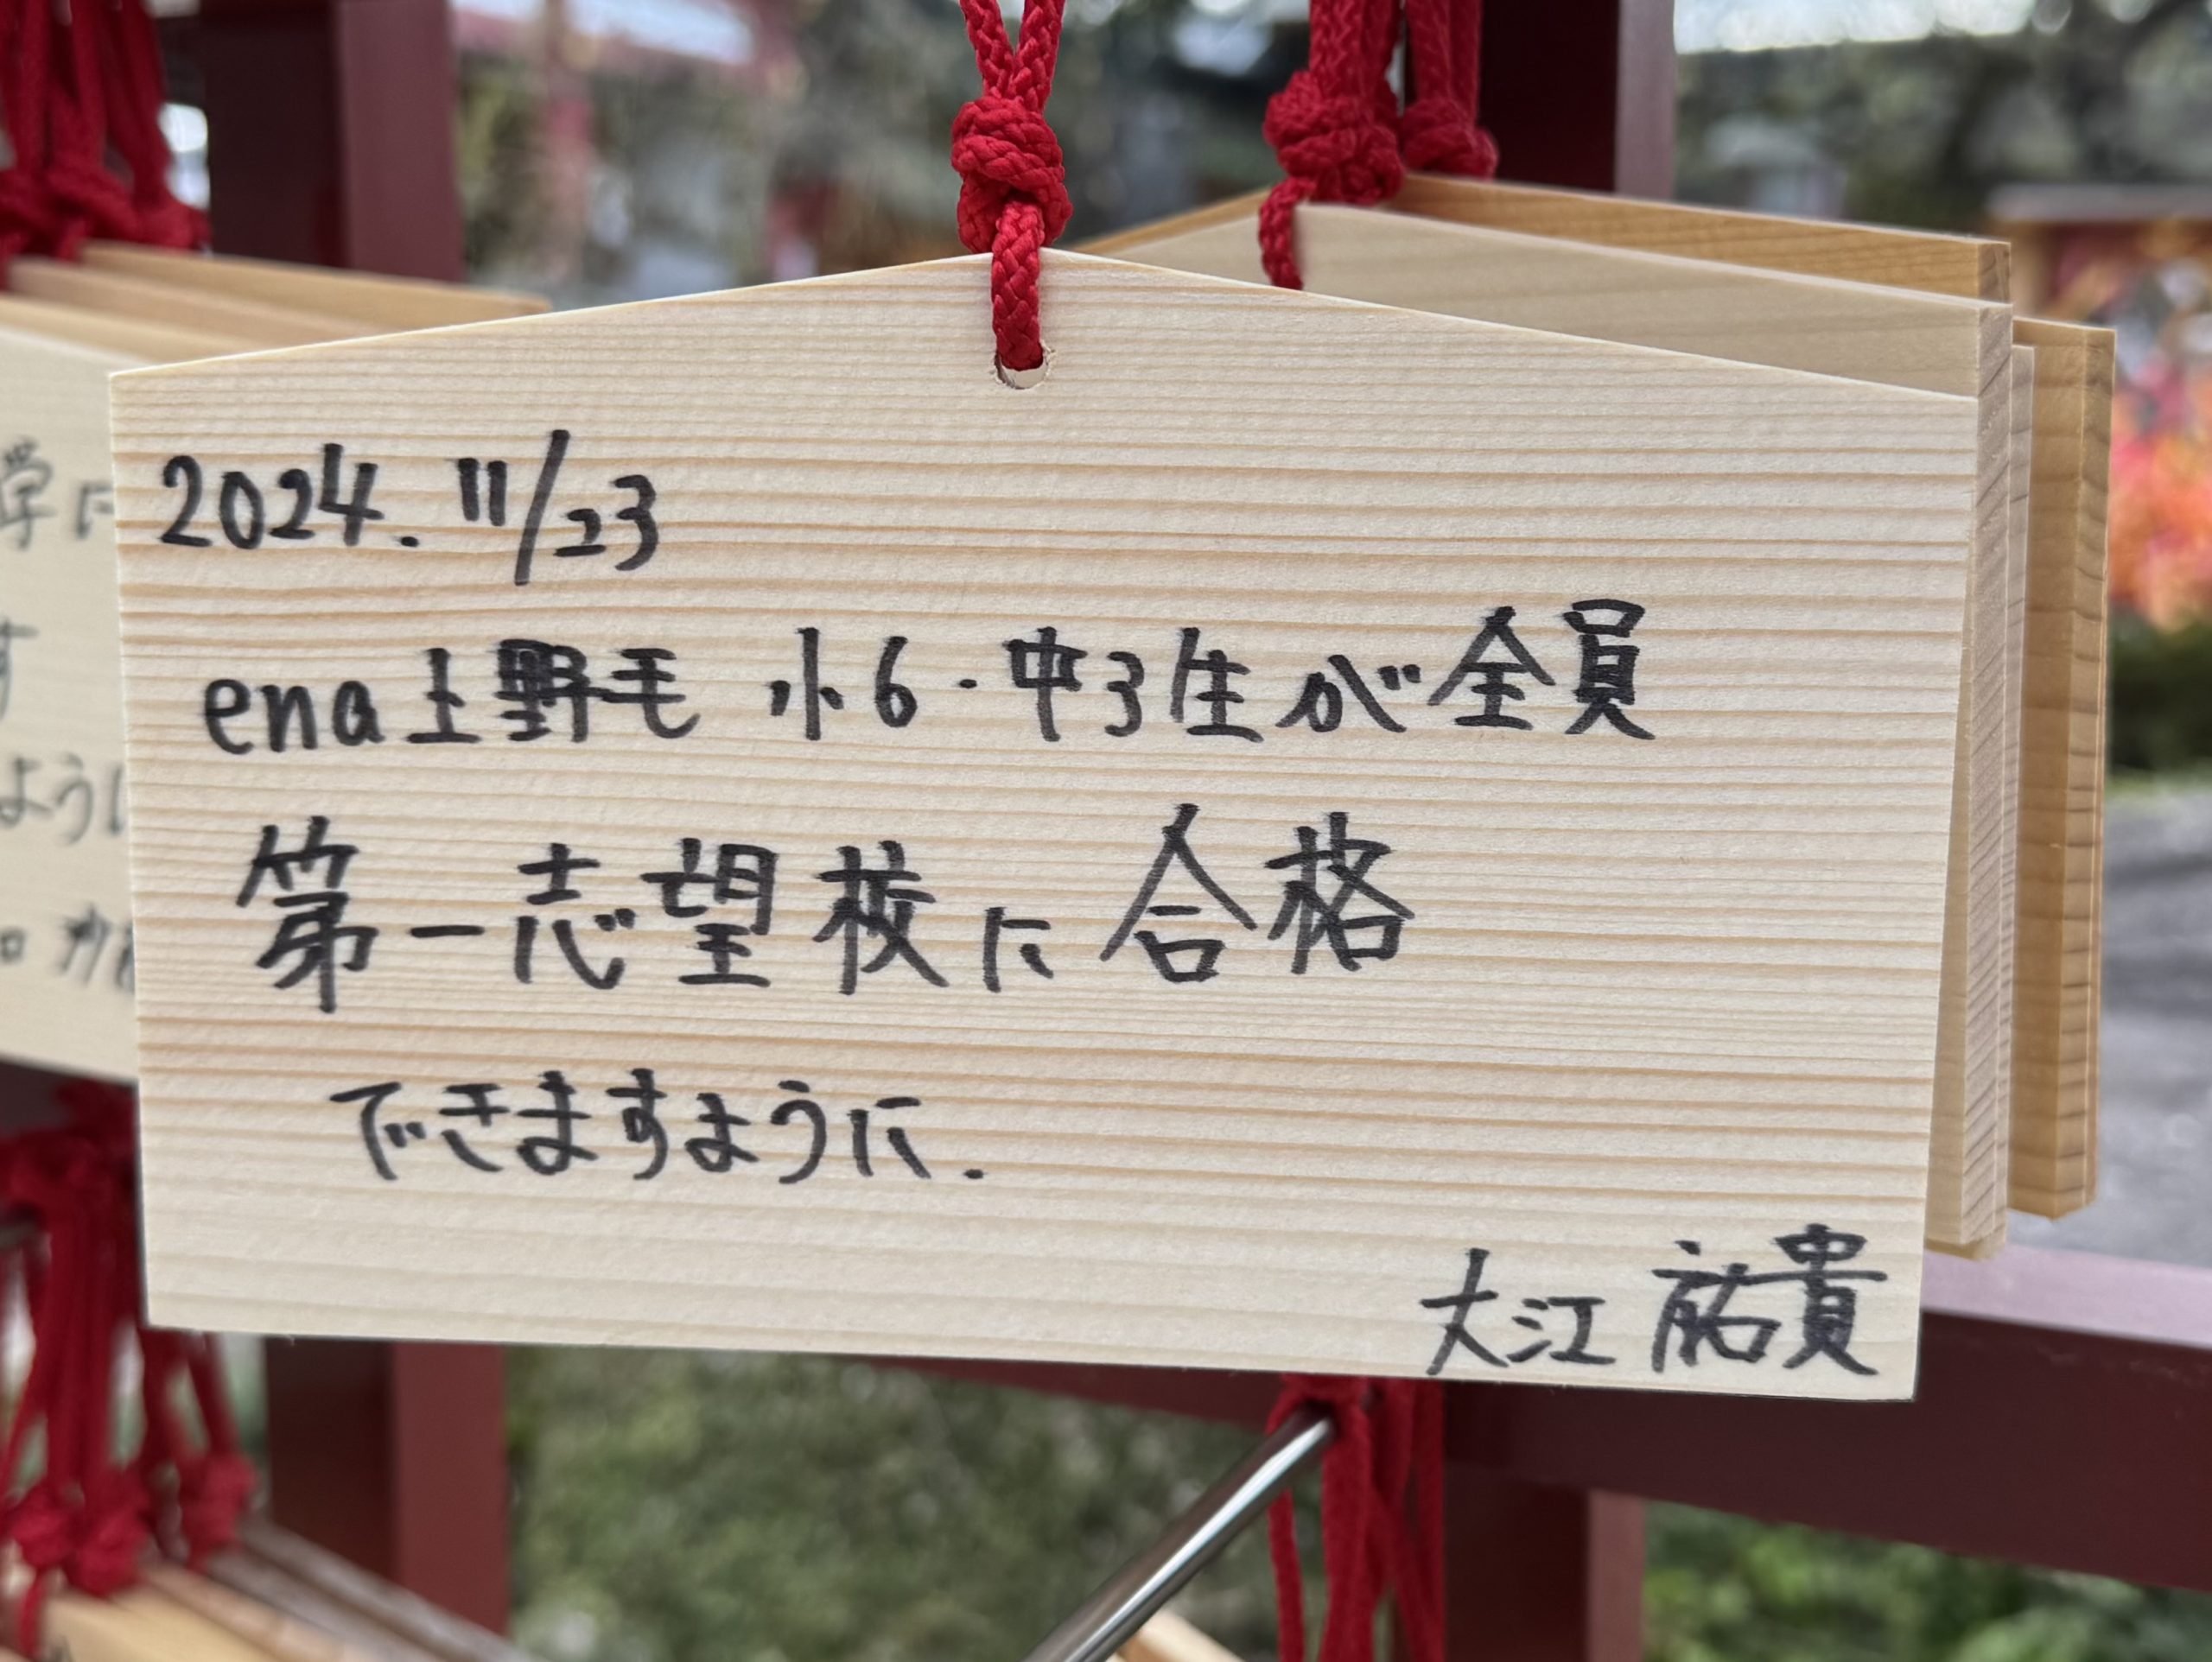 2024. 11/23
ena上野毛 小6・中3生が全員
第一志望校に合格
できますように.
大江 祐貴
学に
す
ように